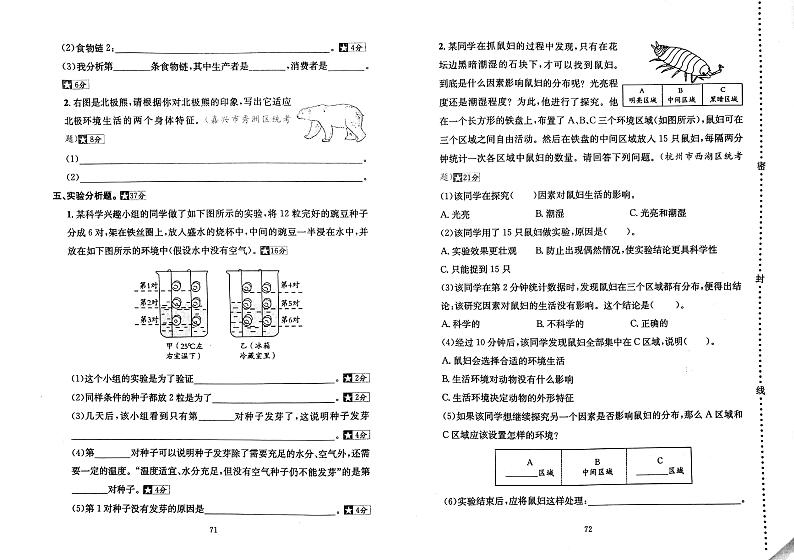 (2)食物链 2:________。★4分
(3)我分析第________条食物链,其中生产者是________,消费者是________。
★6分
2. 右图是北极熊,请根据你对北极熊的印象,写出它适应
北极环境生活的两个身体特征。(嘉兴市秀洲区统考
题)★8分
(1)________
(2)________
五、实验分析题。★37分
1. 某科学兴趣小组的同学做了如下图所示的实验,将 12 粒完好的豌豆种子
分成 6 对,架在铁丝圈上,放入盛水的烧杯中,中间的豌豆一半浸在水中,并
放在如下图所示的环境中(假设水中没有空气)。★16分
第1对
第2对
第3对
第4对
第5对
第6对
甲(25℃左
右室温下)
乙(冰箱
冷藏室里)
(1)这个小组的实验是为了验证________。★2分
(2)同样条件的种子都放 2 粒是为了________。★2分
(3)几天后,该小组看到只有第________对种子发芽了,这说明种子发芽
________。★4分
(4)第________对种子可以说明种子发芽除了需要充足的水分、空气外,还需
要一定的温度。“温度适宜、水分充足,但没有空气种子仍不能发芽”的是第
________对种子。★4分
(5)第 1 对种子没有发芽的原因是________。★4分
71
2. 某同学在抓鼠妇的过程中发现,只有在花
坛边黑暗潮湿的石块下,才可以找到鼠妇。
到底是什么因素影响鼠妇的分布呢?光亮程
度还是潮湿程度?为此,他进行了探究。他
A
明亮区域
B
中间区域
C
黑暗区域
在一个长方形的铁盘上,布置了 A、B、C 三个环境区域(如图所示),鼠妇可在
三个区域之间自由活动。然后在铁盘的中间区域放入 15 只鼠妇,每隔两分
钟统计一次各区域中鼠妇的数量。请回答下列问题。(杭州市西湖区统考
题)★21分
(1)该同学在探究( )因素对鼠妇生活的影响。
A. 光亮 B. 潮湿 C. 光亮和潮湿
(2)该同学用了 15 只鼠妇做实验,原因是( )。
A. 实验效果更壮观 B. 防止出现偶然情况,使实验结论更具科学性
C. 只能捉到 15 只
(3)该同学在第 2 分钟统计数据时,发现鼠妇在三个区域都有分布,便得出结
论:该研究因素对鼠妇的生活没有影响。这个结论是( )。
A. 科学的 B. 不科学的 C. 正确的
(4)经过 10 分钟后,该同学发现鼠妇全部集中在 C 区域,说明( )。
A. 鼠妇会选择合适的环境生活
B. 生活环境对动物没有什么影响
C. 生活环境决定动物的外形特征
(5)如果该同学想继续探究另一个因素是否影响鼠妇的分布,那么 A 区域和
C 区域应该设置怎样的环境?
A
________区域
B
中间区域
C
________区域
(6)实验结束后,应将鼠妇这样处理:________。
72
密
封
线